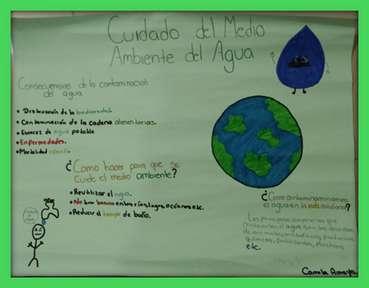 Cuidado del Medio
Ambiente del Agua
Consecuencias de la contaminación
del agua
• Disminución de la biodiversidad.
• Contaminación de la cadena alimentaria.
• Escasez de agua potable
• Enfermedades.
• Mortalidad infantil
¿Como hacer para que se
cuide el medio ambiente?
• Reutilizar el agua.
• No tirar basura en los ríos, lagos, océanos etc.
• Reducir el tiempo de baño.
¿Como contaminamos
el agua en la vida cotidiana?
Las principales
el agua son los desechos
etc.
Camila Amaya